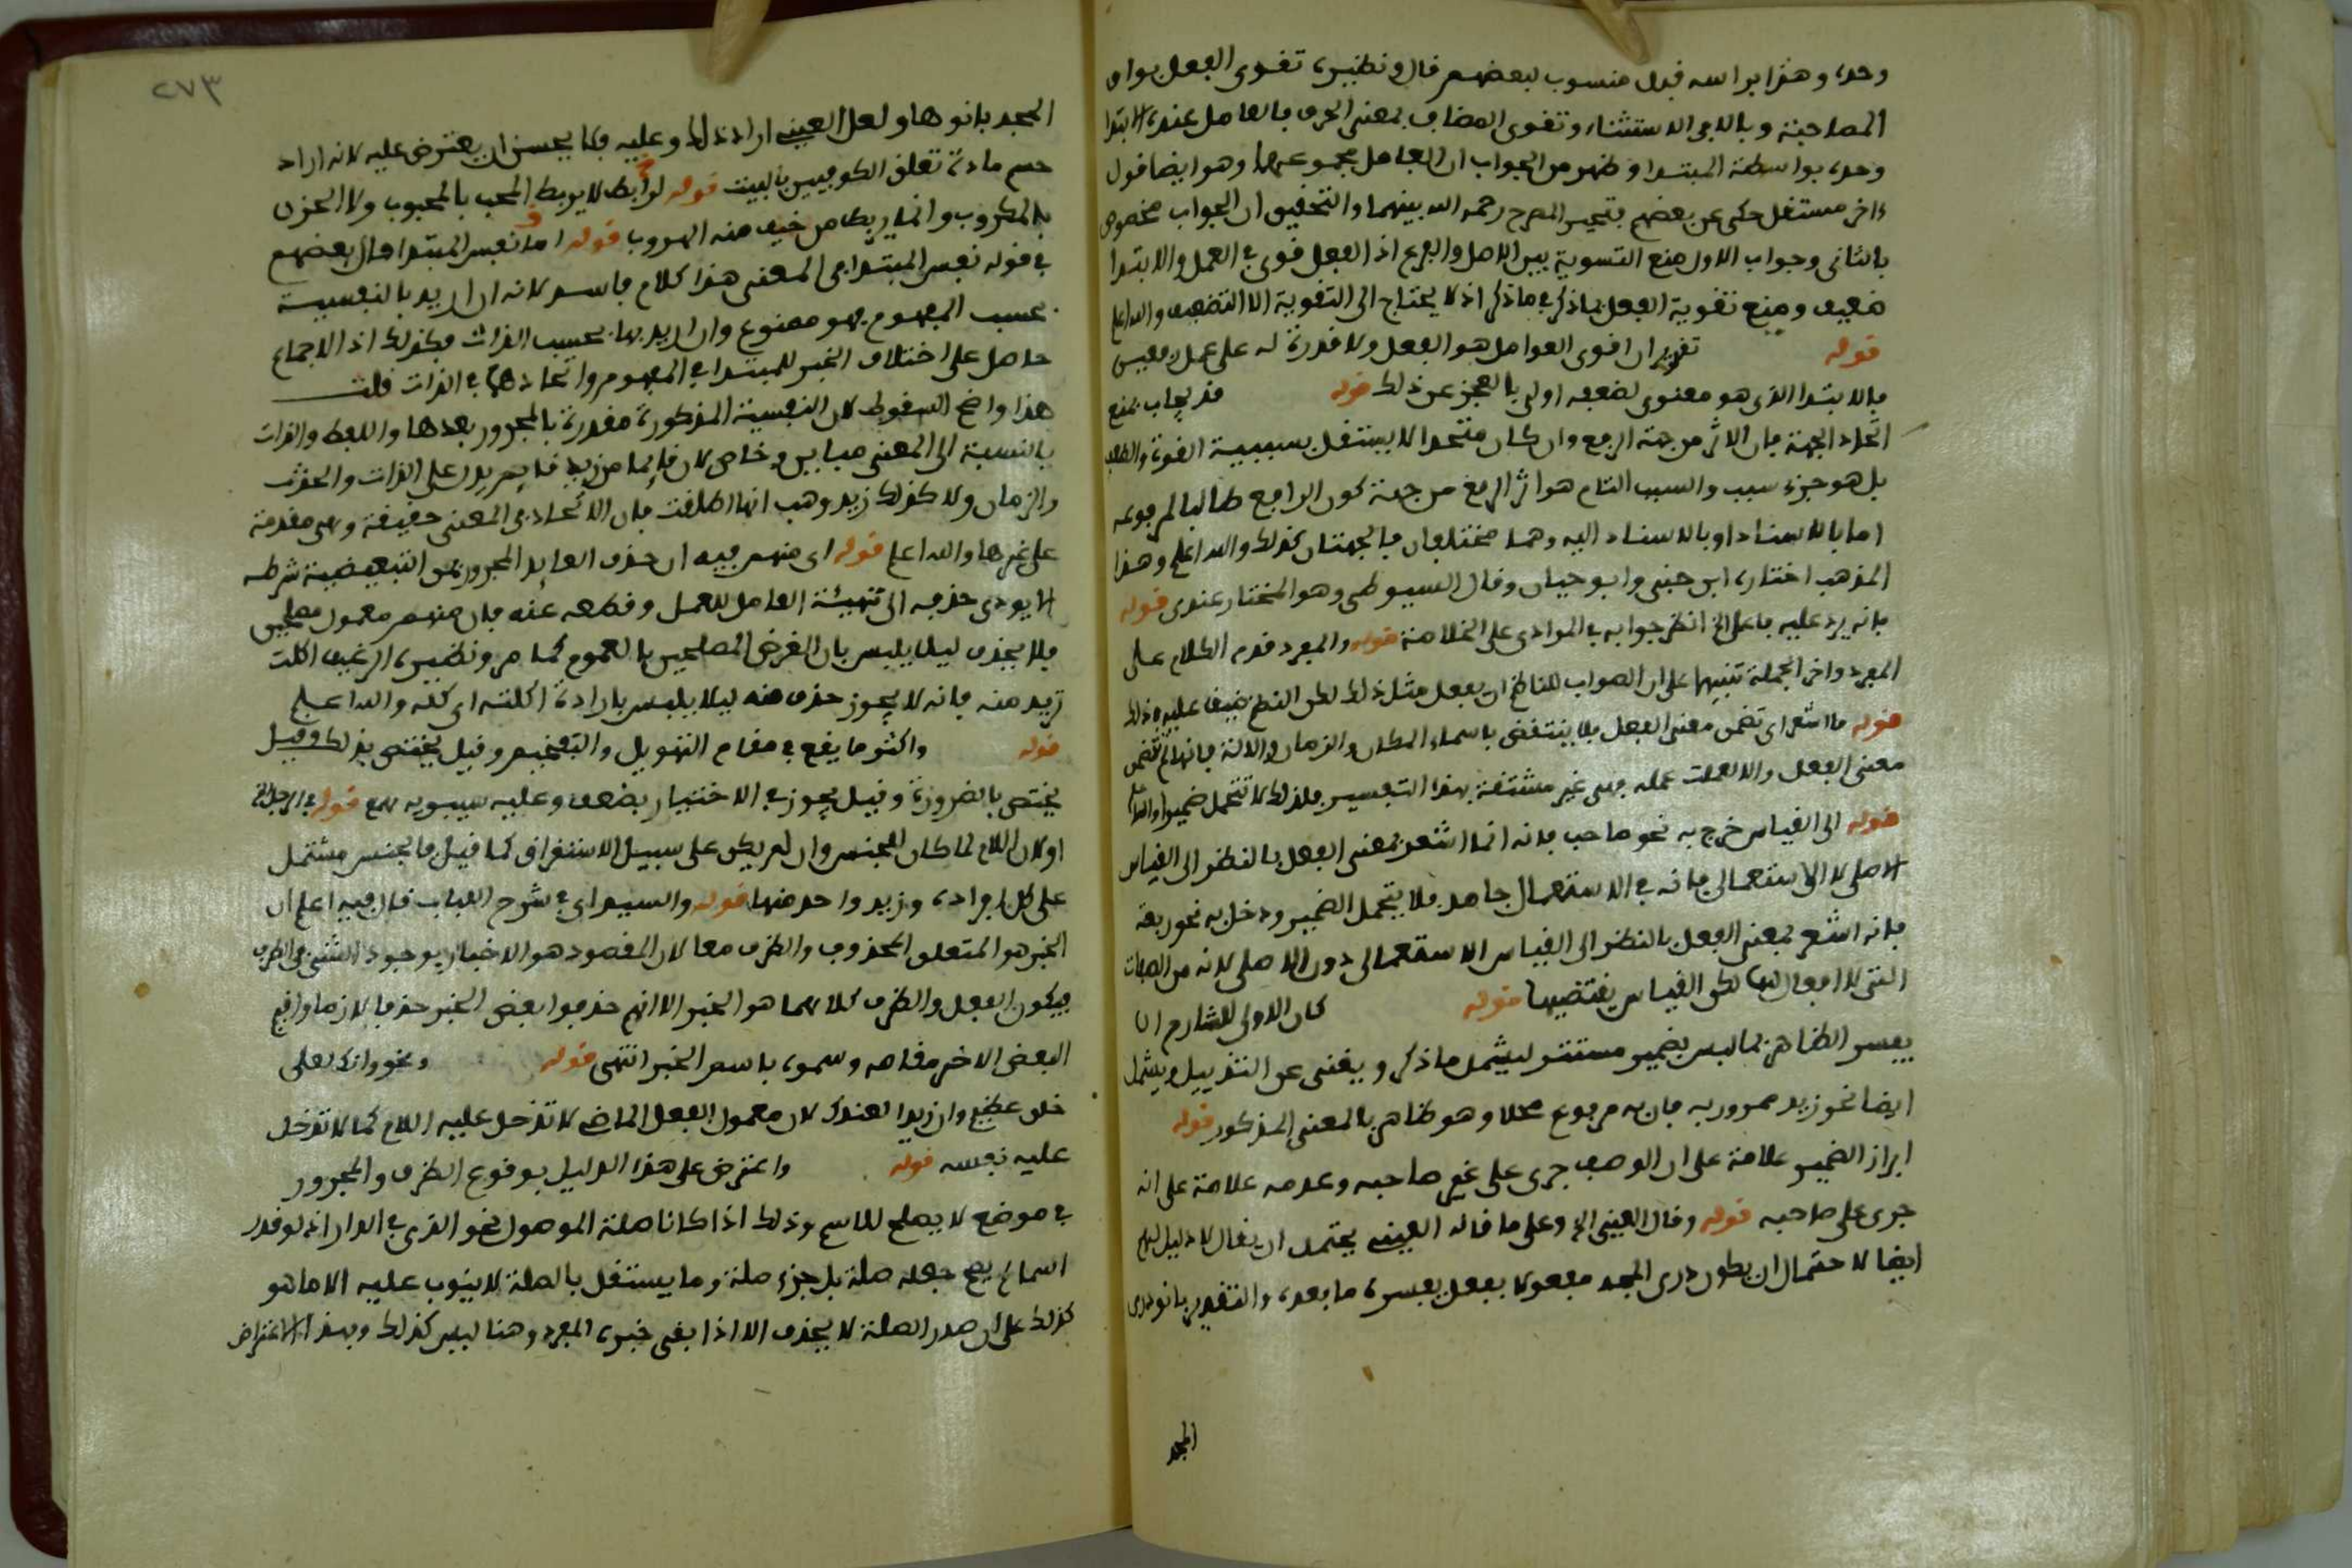 وحده وهذا براسه قول منسوب لبعضهم قال ونظيره تقوى الفعل بواو
المصاحبة وبالا في الاستثناء وتقوى المضاف بمعنى الحرف فالعامل عنده الابتدا
وحده بواسطة المبتدا وظهر من الجواب ان العامل مجموعهما وهو ايضا قول
ءاخر مستقل حكي عن بعضهم المصرح رحمه الله بينهما والتحقيق ان الجواب مخصوص
بالثاني وجواب الاول منع التسوية بين الاصل والفرع اذ الفعل قوي في العمل والابتدا
ضعيف ومنع تقوية الفعل بما ذكر في ما ذكر اذ لا يحتاج الى التقوية الا الضعيف والله اعلم
قوله تقريره ان اقوى العوامل هو الفعل ولا قدرة له على عمل رفعين
فالابتدا الذي هو معنوي لضعفه اولى بالعجز عن ذلك قوله قد يجاب بمنع
اتحاد الجهة فان الاثر من جهة الرفع وان كان متحدا لا يستقل بسببية القوة والضعف
بل هو جزء سبب والسبب التام هو اثر الرفع من جهة كون الرافع طالبا لمرفوعه
اما بالاسناد او بالاسناد اليه وهما مختلفان فالجهتان كذلك والله اعلم وهذا
المذهب اختاره ابن جني وابو حيان وقال السيوطي وهو المختار عندي قوله
بانه يرد عليه ما على الخ انظر جوابه في الموادي على الخلاصة قوله والمفرد قدم الكلام على
المفرد واخر الجملة تنبيها على ان الصواب للناظم ان يفعل مثل ذلك لكن النظم ضيق عليه ذلك
قوله ما اشعر اي تضمن معنى الفعل فلا ينتقض باسماء المكان والزمان والالة فانها لم تضمن
معنى الفعل والا لعملت عمله فهي غير مشتقة بهذا التفسير فلذلك لا تتحمل ضميرا والله اعلم
قوله الى القياس خرج به نحو صاحب فانه انما اشعر بمعنى الفعل بالنظر الى القياس
الاصلي لا الاستعمالي فانه في الاستعمال جامد فلا يتحمل الضمير ودخل به نحو ربعة
فانه اشعر بمعنى الفعل بالنظر الى القياس الاستعمالي دون الاصلي لانه من الصفات
التي لا افعال لها لكن القياس يقتضيها قوله كان الاولى للشارح ان
يفسر الظاهر بما ليس بضمير مستتر ليشمل ما ذكر ويغني عن التذييل ويشمل
ايضا نحو زيد ممرور به فان به مرفوع محلا وهو ظاهر بالمعنى المذكور قوله
ابراز الضمير علامة على ان الوصف جرى على غير صاحبه وعدمه علامة على انه
جرى على صاحبه قوله وقال العيني الخ وعلى ما قاله العيني يحتمل ان يقال لا دليل لهم
ايضا لاحتمال ان يكون ذرى المجد مفعولا بفعل يفسره ما بعده والتقدير بانو ذرى
المجد
٢٧٣
المجد بانوها ولعل العيني اراد ذلك وعليه فلا يحسن ان يعترض عليه لانه اراد
حسم مادة تعلق الكوفيين بالبيت قوله لرابط لا يربط المحب بالمحبوب ولا الحزن
بالمكروب وانما يربط من خيف منه الهروب قوله اما نفس المبتدا قال بعضهم
في قوله نفس المبتدا في المعنى هذا كلام فاسد لانه ان اريد بالنفسية
بحسب المفهوم فهو ممنوع وان اريد بها بحسب الذات فكذلك اذ الاجماع
حاصل على اختلاف الخبر للمبتدا في المفهوم واتحادهما في الذات قلت
هذا واضح السقوط لان النفسية المذكورة مقدرة بالمجرور بعدها واللفظ والذات
بالنسبة الى المعنى مباين وخاص لان قايما من زيد قايم يدل على الذات والحدث
والزمان ولا كذلك زيد وهب انها اطلقت فان الاتحاد في المعنى حقيقة وهي مقدمة
على غيرها والله اعلم قوله اي منهم فيه ان حذف العايد المجرور بمن التبعيضية شرطه
الا يودي حذفه الى تهيئة العامل للعمل وقطعه عنه فان منهم معمول مصلحين
فلا يحذف ليلا يلبس بان الغرض المصلحين بالعموم كما مر ونظيره الرغيف اكلت
نريد منه فانه لا يجوز حذف منه ليلا يلبس بارادة اكلته اي كله والله اعلم
قوله واكثر ما يقع في مقام التهويل والتفخيم وقيل يختص بذلك وقيل
يختص بالضرورة وقيل يجوز في الاختيار بضعف وعليه سيبويه قوله في الرجل الخ
او لان اللام لما كان للجنس وان لم يكن على سبيل الاستغراق كما قيل فالجنس مشتمل
على كل افراده وزيد واحد منها قوله والسيد اي في شرح اللباب قال فيه اعلم ان
الخبر هو المتعلق المحذوف والظرف معا لان المقصود هو الاخبار بوجود الشيء في الظرف
فيكون الفعل والظرف كلاهما هو الخبر الا انهم حذفوا بعض الخبر حذفا لازما واقيم
البعض الاخر مقامه وسموه باسم الخبر انتهى قوله ونحو وانك لعلى
خلق عظيم وان زيدا لعندك لان معمول الفعل الماضي لا تدخل عليه اللام كما لا تدخل
عليه نفسه قوله واعترض على هذا الدليل بوقوع الظرف والمجرور
في موضع لا يصلح للاسم وذلك اذا كانا صلة الموصول نحو الذي في الدار اذ لو قدر
اسما لم يصح جعله صلة بل جزء صلة وما يستقل بالصلة لا ينوب عليه الا ما هو
كذلك على ان صدر الصلة لا يحذف الا اذا بقي خبره المفرد وهنا ليس كذلك وبهذا الاعتراض